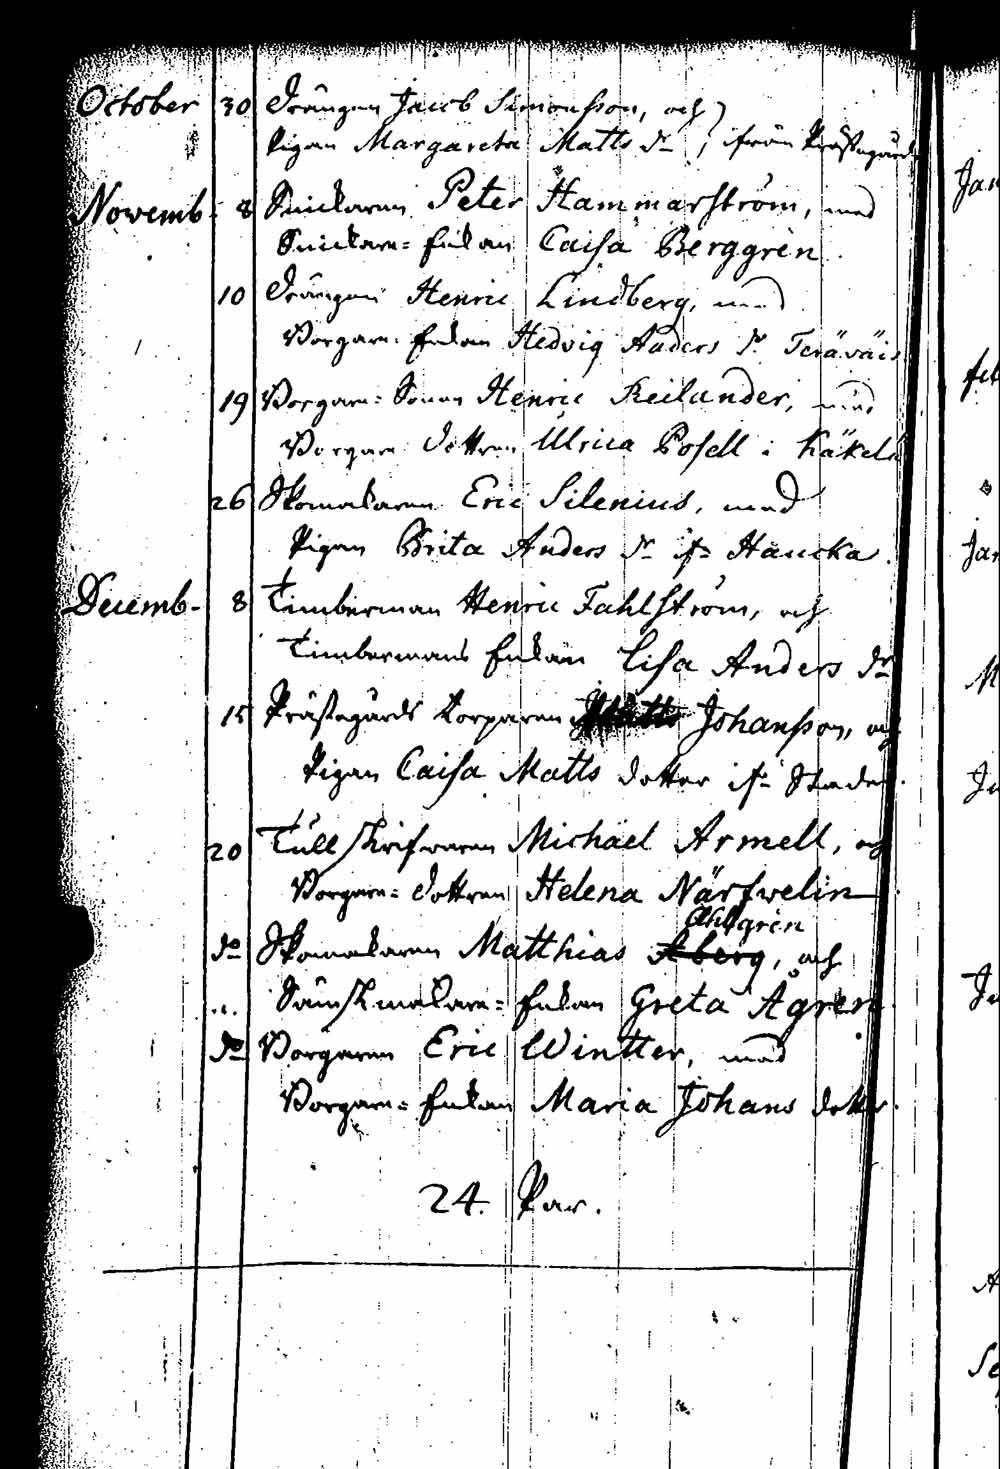 October 30 Drängen Jacob Simonsson, och
Pigan Margareta Matts dr, från Prästegård
Novemb. 8 Snickaren Peter Hammarström, med
Snickare-Enkan Caisa Berggrén
10 Drängen Henric Lindberg, med
Borgare-Enkan Hedvig Anders dr Teräväis
19 Borgare-Sonen Henric Keilander, med
Borgare dottren Ulrica Posell i Käkelä
26 Skomakaren Eric Silenius, med
Pigan Brita Anders dr ifr Haucka.
Decemb- 8 Timberman Henric Fahlström, och
Timbermans Enkan Lisa Anders dr
15 Prästegårds torparen Johansson, och
Pigan Caisa Matts dotter ifr Staden.
20 Tullskrifvaren Michaël Armell, och
Borgare-dottren Helena Närfwelin
Ahlgrén
do Skomakaren Matthias Aberg, och
Enkan Greta Ågren
do Borgaren Eric Wintter, med
Borgare-Enkan Maria Johans dotter.
24. Par.